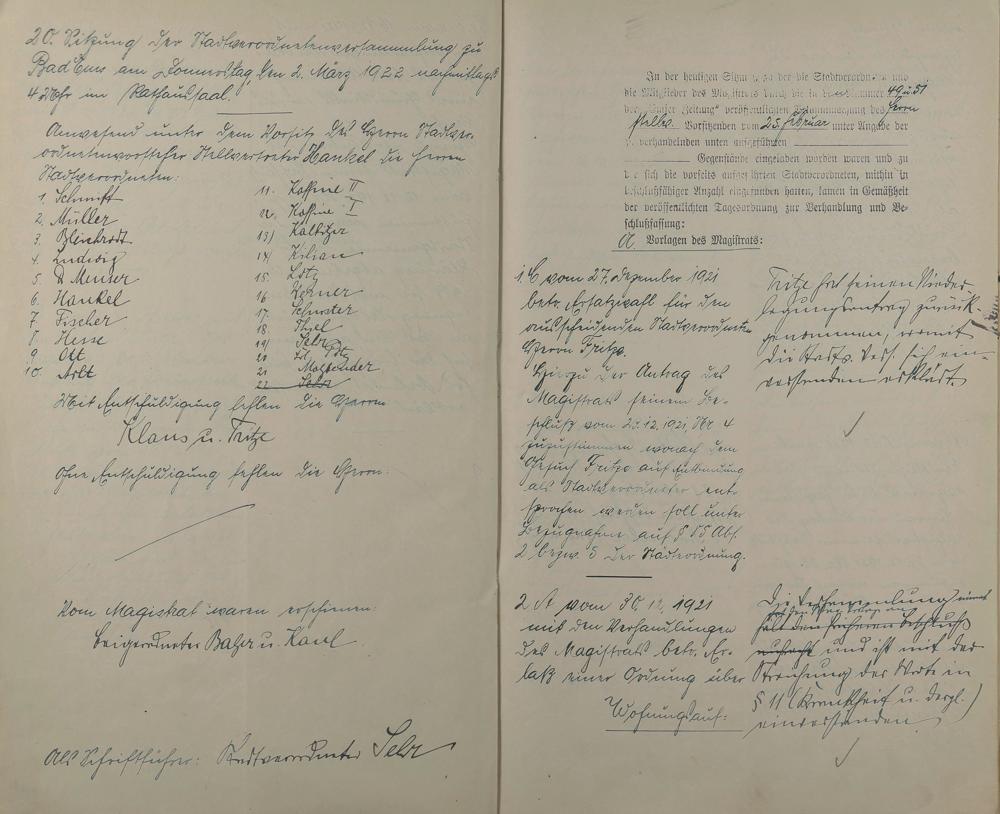 20. Sitzung der Stadtverordnetenversammlung zu
Bad Ems am Donnerstag, den 2. März 1922 nachmittags
4 Uhr im Rathaussaal.
Anwesend unter dem Vorsitz des Herrn Stadtver-
ordnetenvorsteher Stellvertreter Hankel die Herren
Stadtverordneten:
1. Schmitt
2. Müller
3. Bleichrodt
4. Ludwig
5. D Meuser
6. Hankel
7. Fischer
8. Hesse
9. Ott
10. Arlt
11. Kaffine II
12. Kaffine I
13) Kalbitzer
14) Kilian
15. Lotz
16 Werner
17. Schuster
18. Thiel
19)
20
21
22 Selz
Mit Entschuldigung fehlen die Herren
Klaus u. Fritze
Ohne Entschuldigung fehlen die Herren:
Vom Magistrat waren erschienen:
Beigeordneter Balzer u. Kaul.
Als Schriftführer: Stadtverordneter Selz
In der heutigen Sitzung zu der die Stadtverordneten und
die Mitglieder des Magistrats durch die in Nummer 49 u 51
der "Emser Zeitung" veröffentlichten Bekanntmachung des Herrn
stellv. Vorsitzenden vom 25. Februar unter Angabe der
zu verhandelnden unten aufgeführten
Gegenstände eingeladen worden waren und zu
der sich die vorseits aufgeführten Stadtverordneten, mithin in
beschlußfähiger Anzahl eingefunden hatten, kamen in Gemäßheit
der veröffentlichten Tagesordnung zur Verhandlung und Be-
schlußfassung:
A. Vorlagen des Magistrats:
1. C vom 27. Dezember 1921
betr. Ersatzwahl für den
ausscheidenden Stadtverordneten
Herrn Fritze.
Hierzu der Antrag des
Magistrats seinem Be-
schluß vom 23.12.1921 Nr. 4
zuzustimmen wonach dem
Gesuch Fritze auf Entbindung
als Stadtverordneter ent-
sprochen werden soll unter
Bezugnahme auf § 55 Abs.
2 bezw. 5 der Städteordnung.
Fritze hat seinen Nieder-
legungsantrag zurück-
genommen, womit
die Stadtv. Vers. sich ein-
verstanden erklärt.
2 A vom 30.12.1921
mit den Verhandlungen
des Magistrats betr. Er-
laß einer Ordnung über
Wohnungsauf:
Die Versammlung
hält den früheren Beschluß
aufrecht und ist mit der
Streichung der Worte in
§ 11 (Krankheit u. dergl.)
einverstanden